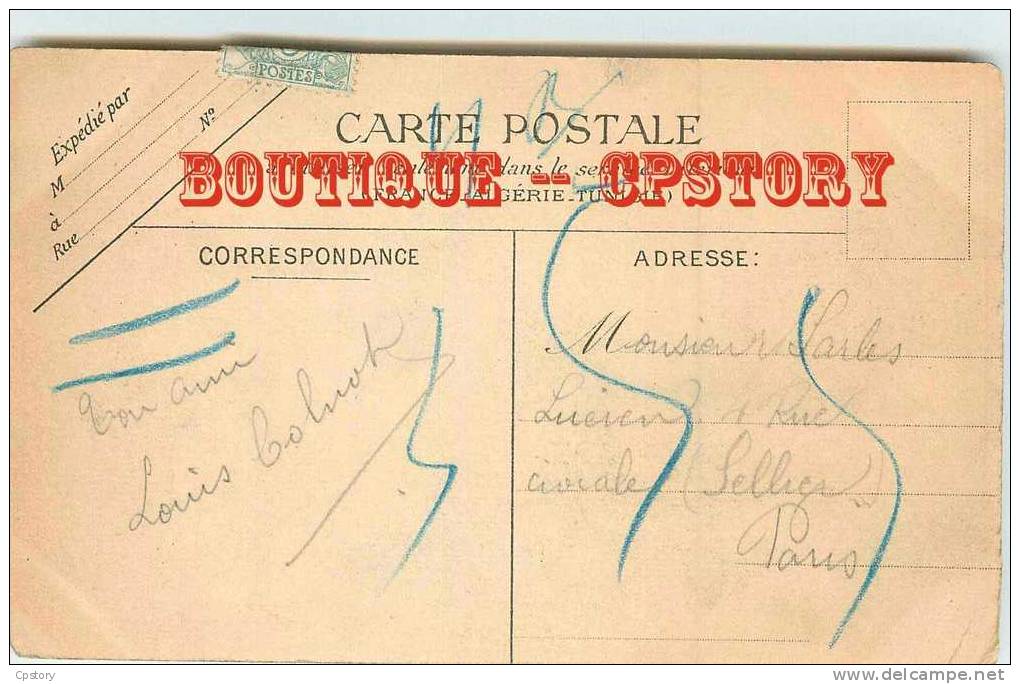 POSTES
Expédié par
M
à
Nº
Rue
CARTE POSTALE
BOUTIQUE -- CPSTORY
dans le
(FRANCE-ALGÉRIE-TUNISIE)
CORRESPONDANCE
ADRESSE:
Ton ami
Louis
Monsieur Sarles
Lucien Rue
civiale (Sellier)
Paris
Cpstory
delcampe.net